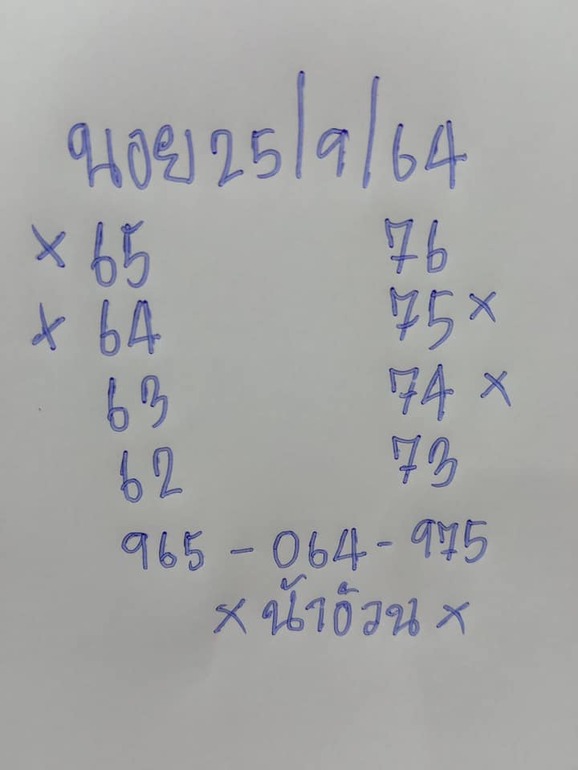 นอย 25/9/64
× 65 76
× 64 75 ×
63 74 ×
62 73
965 - 064 - 975
× น้าอ้วน ×